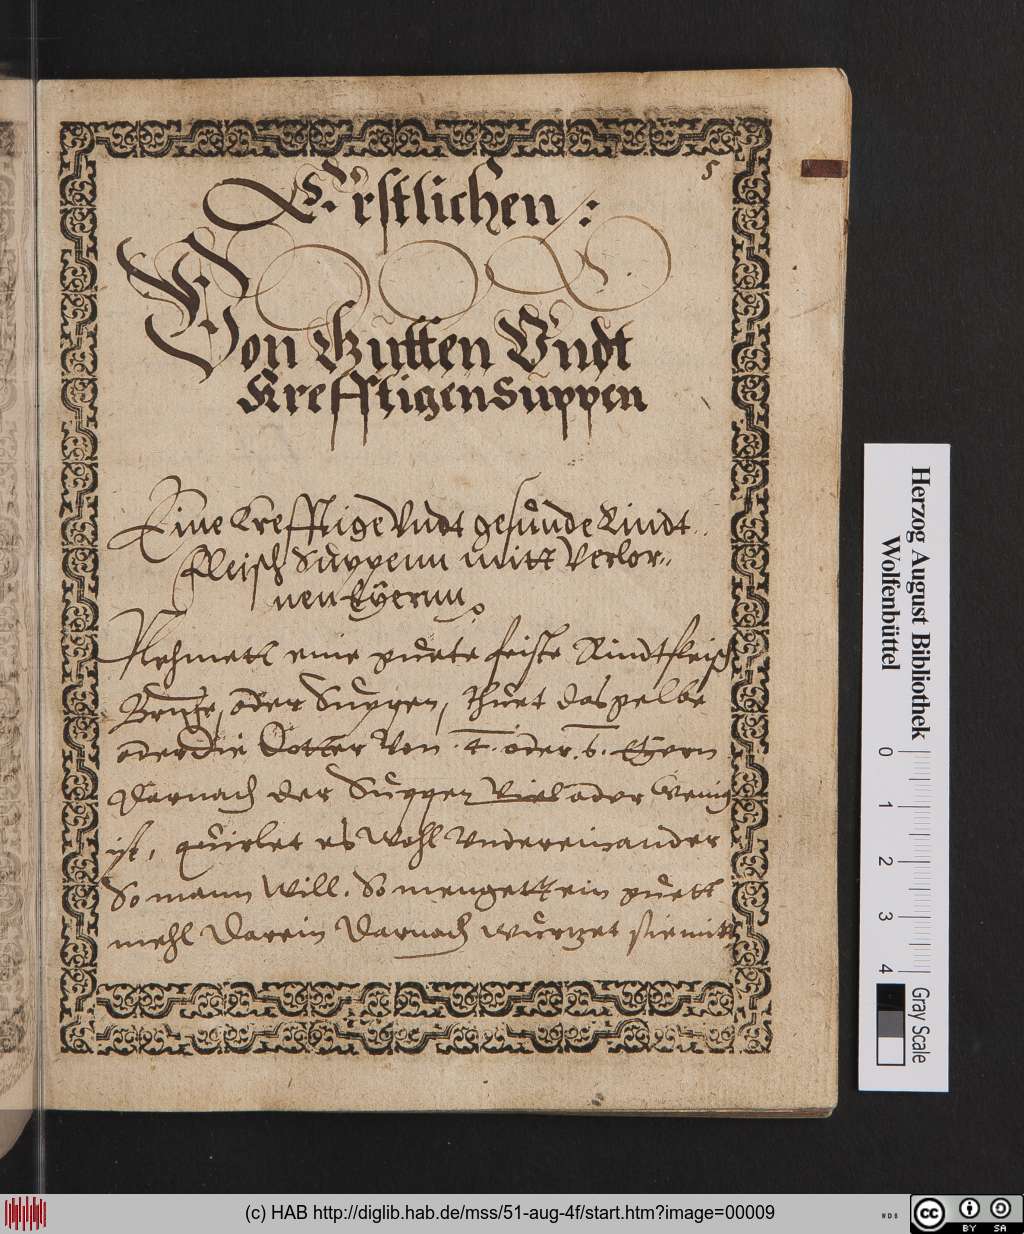 5
Erstlichen :
Von Gutten Vndt
Krefftigen Suppen
Eine Krefftige Vndt gesunde Rindt..
fleisch Suppenn mitt Verlor..
nen Eÿernn
Nehmett eine guete feiste Rindtfleisch
Brühe, oder Suppen, thuet dasselbe
oder die Dotter Von .4. oder .6. Eyern
Darnach der Suppen Viel oder Wenig
ist, quirlet es Wohl Vndereinander
So mann Will. So mengett ein guett
mehl darein Darnach würtzet sie mitt
Herzog August Bibliothek
Wolfenbüttel
0 1 2 3 4
Gray Scale
(c) HAB http://diglib.hab.de/mss/51-aug-4f/start.htm?image=00009
WDB
cc BY SA